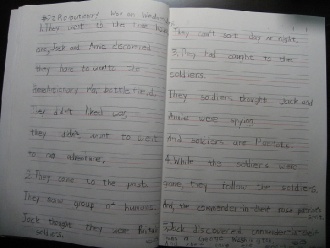 Revolutionary War on Wednesday
1. They went to the tree house
and Jack and Annie discovered
they have to went to the
Revolutionary War battle field.
They didn't liked war,
they didn't want to went
to an adventure.
2. They came to the
They saw group of humans.
Jack thought they were
soldiers.
They can't sait day or night.
3. They had caught to the
soldiers.
They soldiers thought Jack and
Annie were spying
And soldiers are
4. While the soldiers were
gone, they follow the soldiers.
And the commander in their
Jack discovered commander
was a George Washington